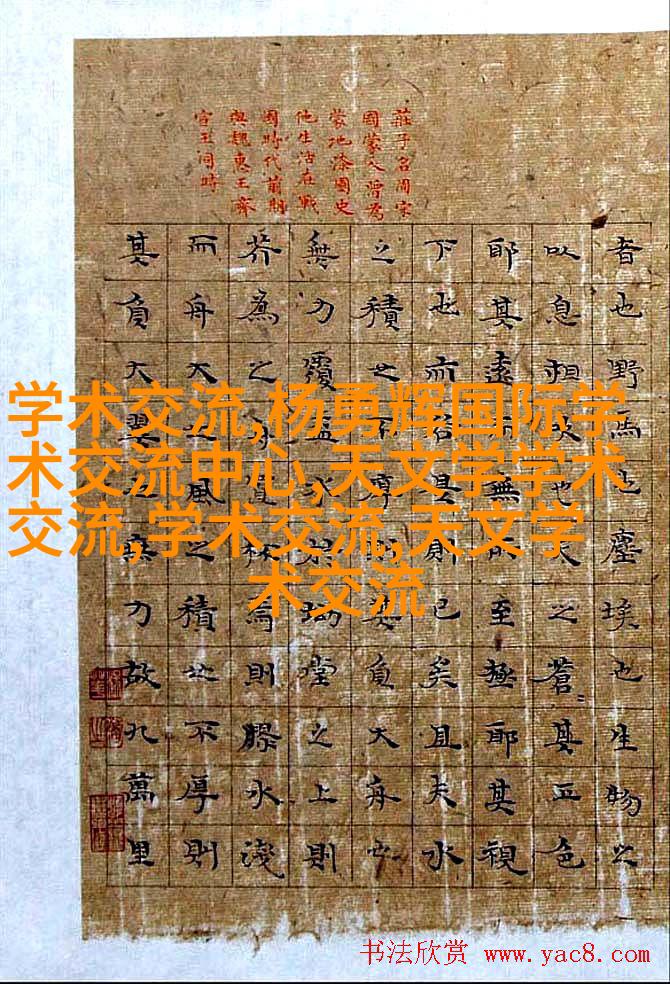 莊子名周宋
國蒙人曾為
蒙地漆園史
他生活在戰
國時代前期
與魏惠王齊
宣王同時
者也野馬也塵埃也生物之
以息相吹也天之蒼〻其正色
耶其遠而無所至極耶其視
下也亦若是則已矣且夫水
之積也不厚則其負大舟也
無力覆盃水於坳堂之上則
芥為之舟置杯焉則膠水淺
而舟大也風之積也不厚則
其負大翼也無力故九萬里
学术交流,杨勇辉国际学
术交流中心,天文学学术
交流,学术交流,天文学
术交流
书法欣赏 www.yac8.com